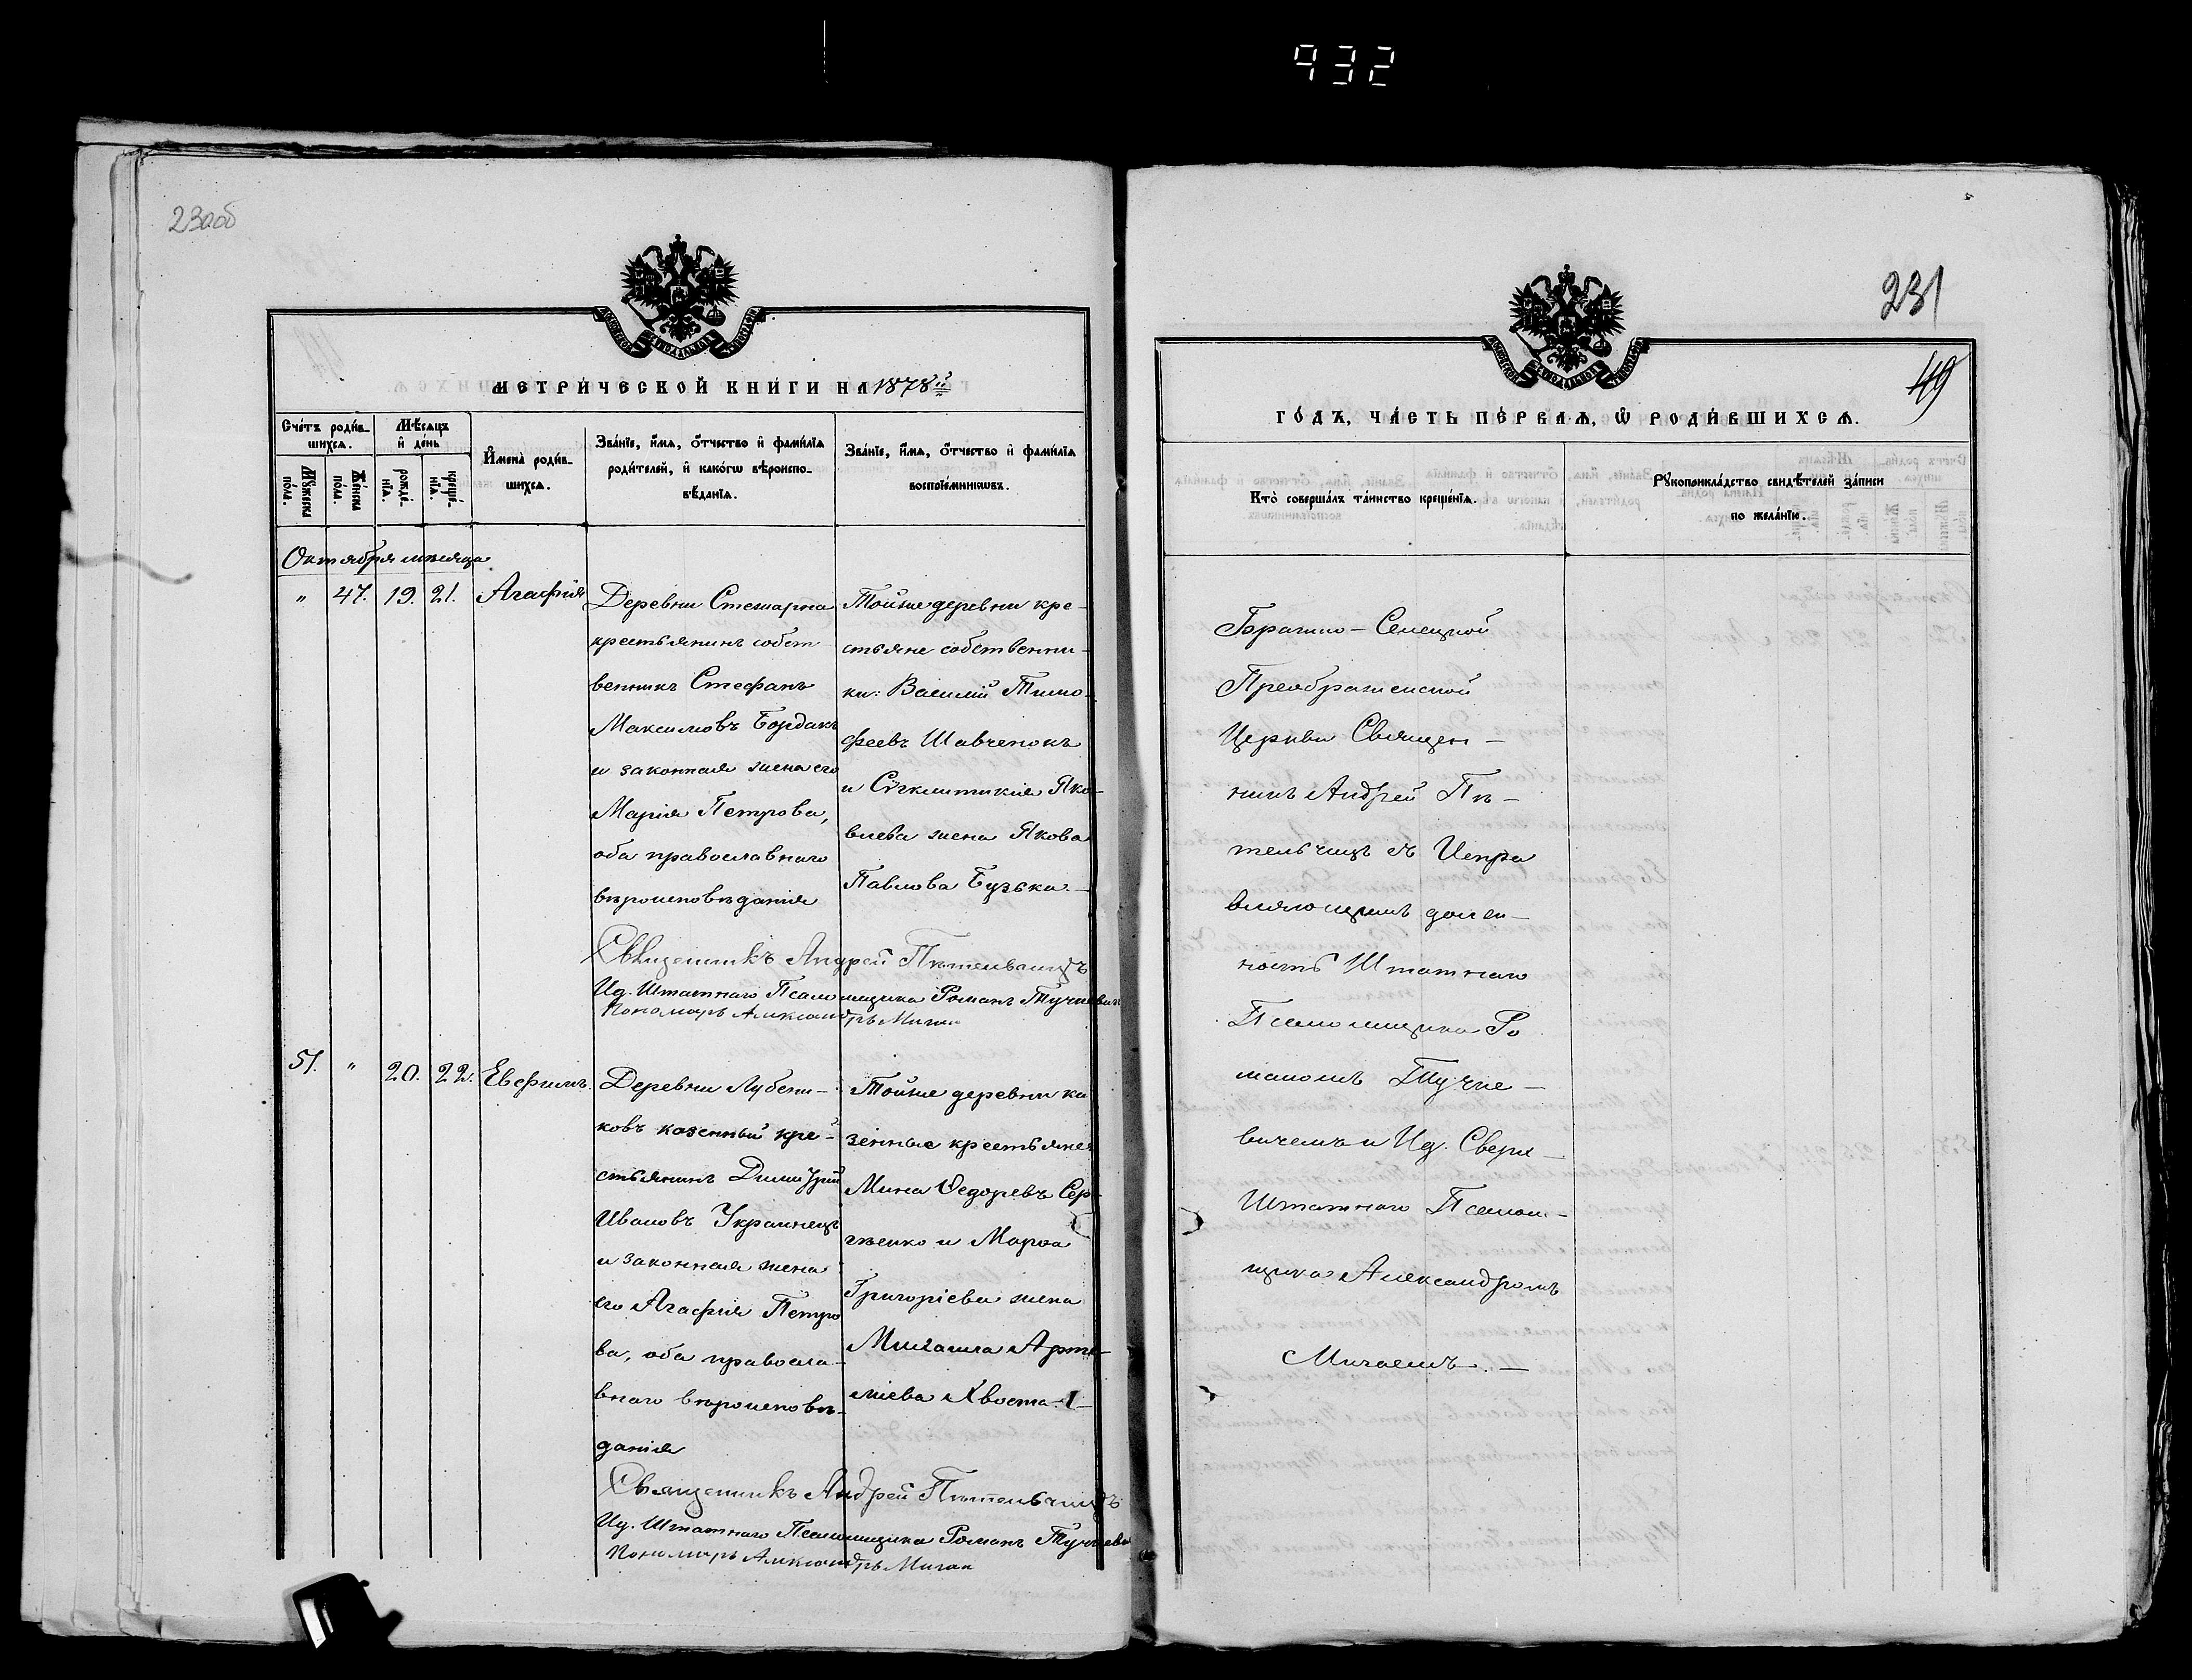 932
230об
МЕТРИЧЕСКОЙ КНИГИ НА 1878й
Счетъ родив-
шихся.
Мѣсяцъ
и день
Имена родив-
шихся.
Званіе, имя, отчество и фамилія
родителей, и какогѡ вѣроиспо-
вѣданія.
Званіе, имя, отчество и фамилія
воспріемникѡвъ.
Мужеска
пола.
Женска
пола.
рожде-
нія.
креще-
нія.
Октября мѣсяца
„ 47. 19. 21. Агафія
Деревни
крестьянинъ собст-
венникъ Стефанъ
Максимовъ Бордакъ
и законная жена его
Марія Петрова,
оба православнаго
вѣроисповѣданія
Тойже деревни кре-
стьяне собственни-
ки: Василій Тимо-
феевъ Шавченокъ
и Сѵнклитикія Яко-
влева жена Якова
Павлова Бузька.—
Священникъ Андрей Пѣтельчицъ
Ид. Штатнаго Псаломщика Романъ
Пономарь Александръ Мигай
51. „ 20. 22. Евфимъ.
Деревни Лубени-
ковъ казенный кре-
стьянинъ Димитрій
Ивановъ Украинецъ
и законная жена
его Агафія Петро
ва, оба правосла-
внаго вѣроисповѣ-
данія
Тойже деревни ка
зенные крестьяне:
Мина Ѳедоревъ Сер-
гѣенко и Марѳа
Григоріева жена
Михаила Арте-
міева Хвоста.—
Священникъ Андрей Пѣтельчицъ
Ид. Штатнаго Псаломщика Романъ
Пономарь Александръ Мигай
231
49
ГОДЪ, ЧАСТЬ ПЕРВАЯ, Ѡ РОДИВШИХСЯ.
Кто совершалъ таинство крещенія.
Рукоприкладство свидѣтелей записи
по желанію.
Горошно-Селецкой
Преображенской
Церкви Священ-
никъ Андрей Пѣ-
тельчицъ съ Испра
вляющимъ долж-
ность Штатнаго
Псаломщика Ро
маномъ Тучке-
вичемъ и Ид. Сверх-
Штатнаго Псалом-
щика Александромъ
Мигаемъ.—